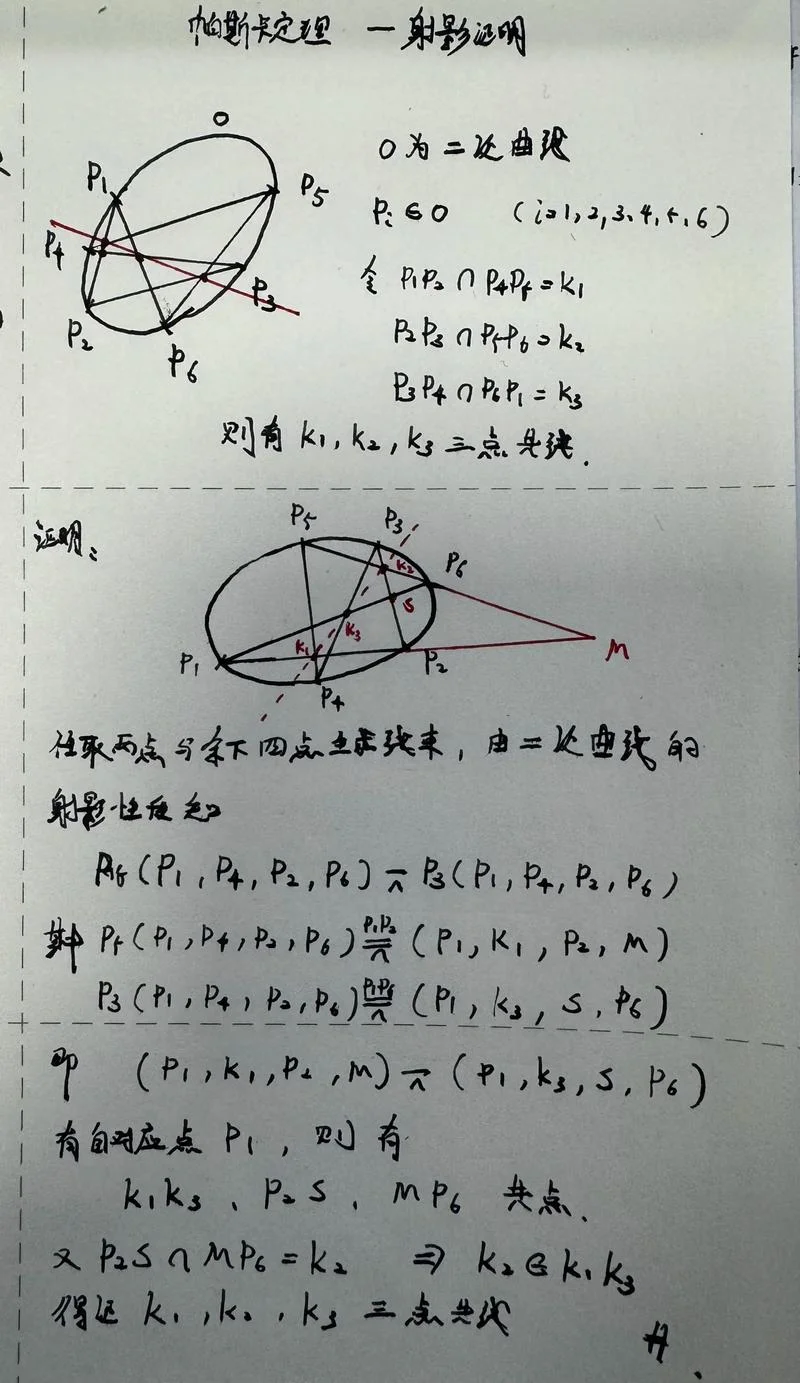 帕斯卡定理 — 射影证明
O
P1
P5
P4
P3
P2
P6
O为二次曲线
Pi∈O (i=1,2,3,4,5,6)
令 P1P2∩P4P5=K1
P2P3∩P5P6=K2
P3P4∩P6P1=K3
则有 K1,K2,K3三点共线.
证明:
P5
P3
K2
P6
S
K3
P1
K1
P2
M
P4
任取两点与余下四点主束线束,由二次曲线的
射影性质知
P5(P1,P4,P2,P6)⊼P3(P1,P4,P2,P6)
其中 P5(P1,P4,P2,P6) P1P2 ⩞ (P1,K1,P2,M)
P3(P1,P4,P2,P6) P1P6 ⩞ (P1,K3,S,P6)
即 (P1,K1,P2,M)⊼(P1,K3,S,P6)
有自对应点P1,则有
K1K3、P2S、MP6 共点.
又P2S∩MP6=K2 ⇒ K2∈K1K3
得证 K1,K2,K3三点共线
#.